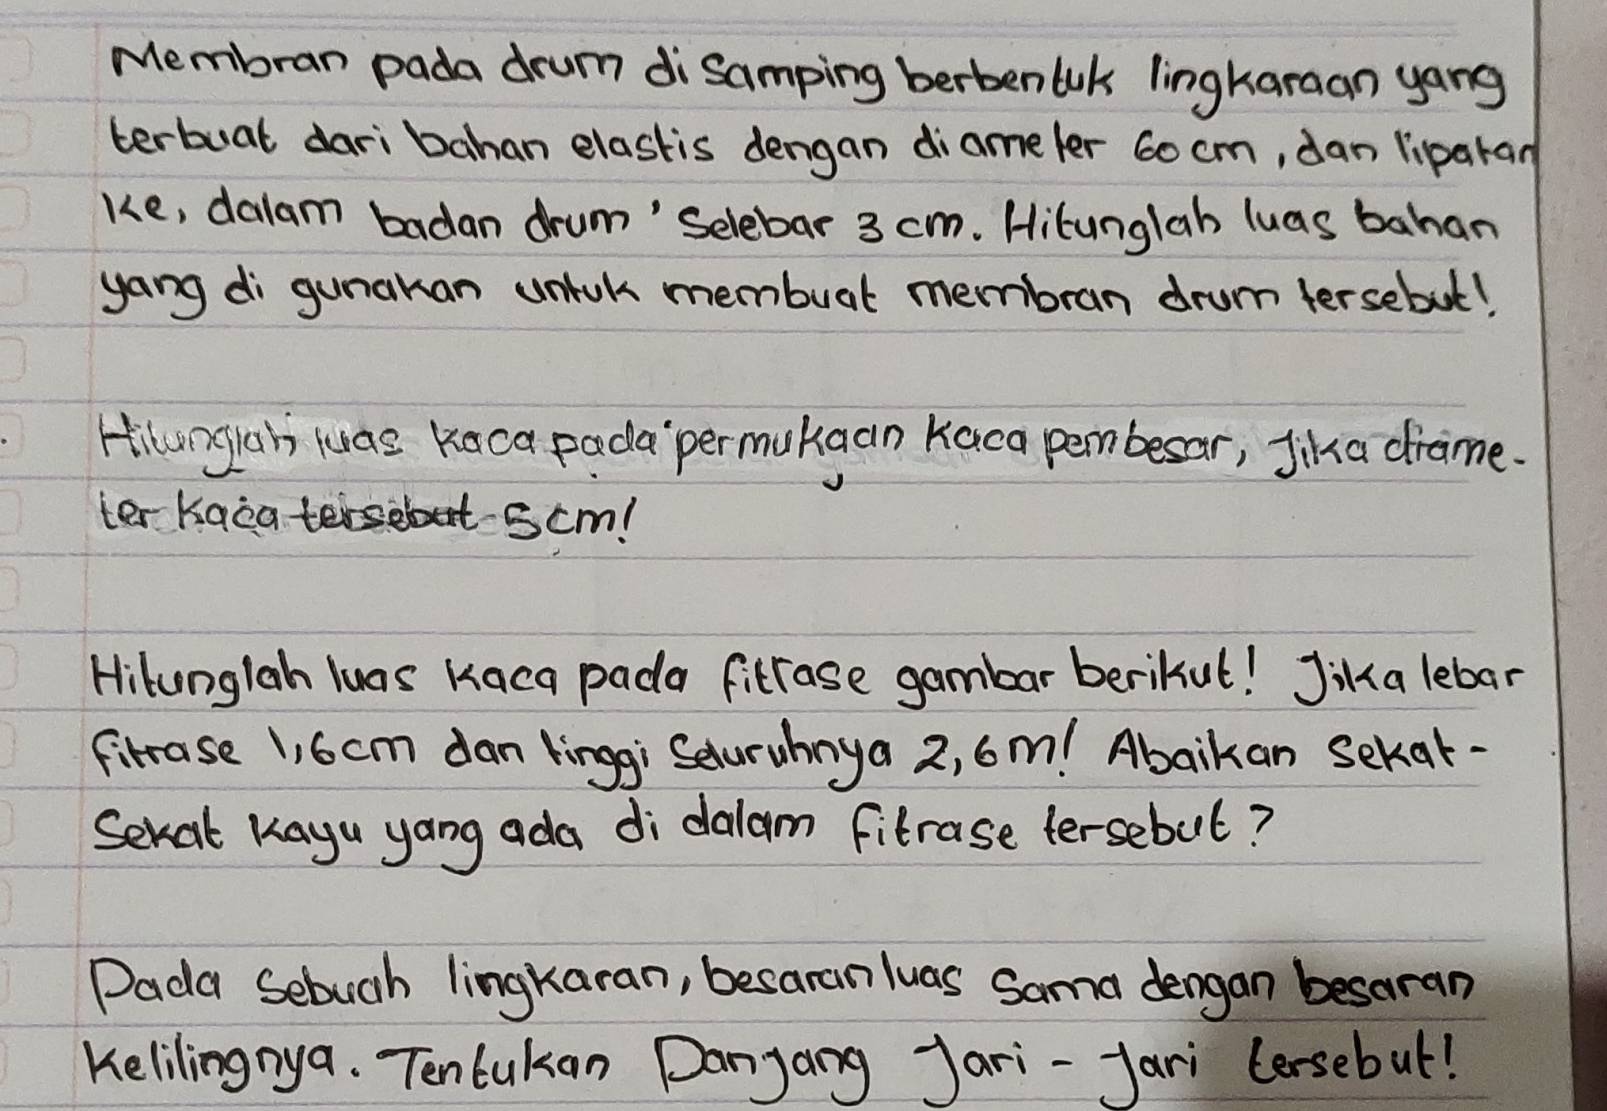 Membran pada drum di samping berbentuk lingkaraan yang
terbuat dari bahan elastis dengan diameter 60 cm, dan lipatan
ke, dalam badan drum' selebar 3 cm. Hitunglah luas bahan
yang di gunakan untuk membuat membran drum tersebut!
Hitunglah luas kaca pada permukaan kaca pembesar, jika diame-
ter kaca tersebut 5 cm!
Hitunglah luas kaca pada fitrase gambar berikut! Jika lebar
fitrase 1,6 cm dan tinggi seluruhnya 2,6 m! Abaikan sekat-
sekat kayu yang ada di dalam fitrase tersebut?
Pada sebuah lingkaran, besaran luas sama dengan besaran
kelilingnya. Tentukan Panjang Jari-Jari tersebut!